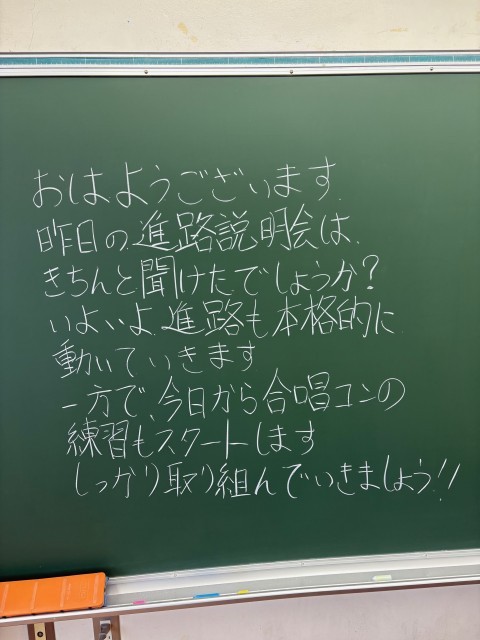 おはようございます.
昨日の進路説明会は、
きちんと聞けたでしょうか?
いよいよ、進路も本格的に
動いていきます
一方で、今日から合唱コンの
練習もスタートします
しっかり取り組んでいきましょう!!